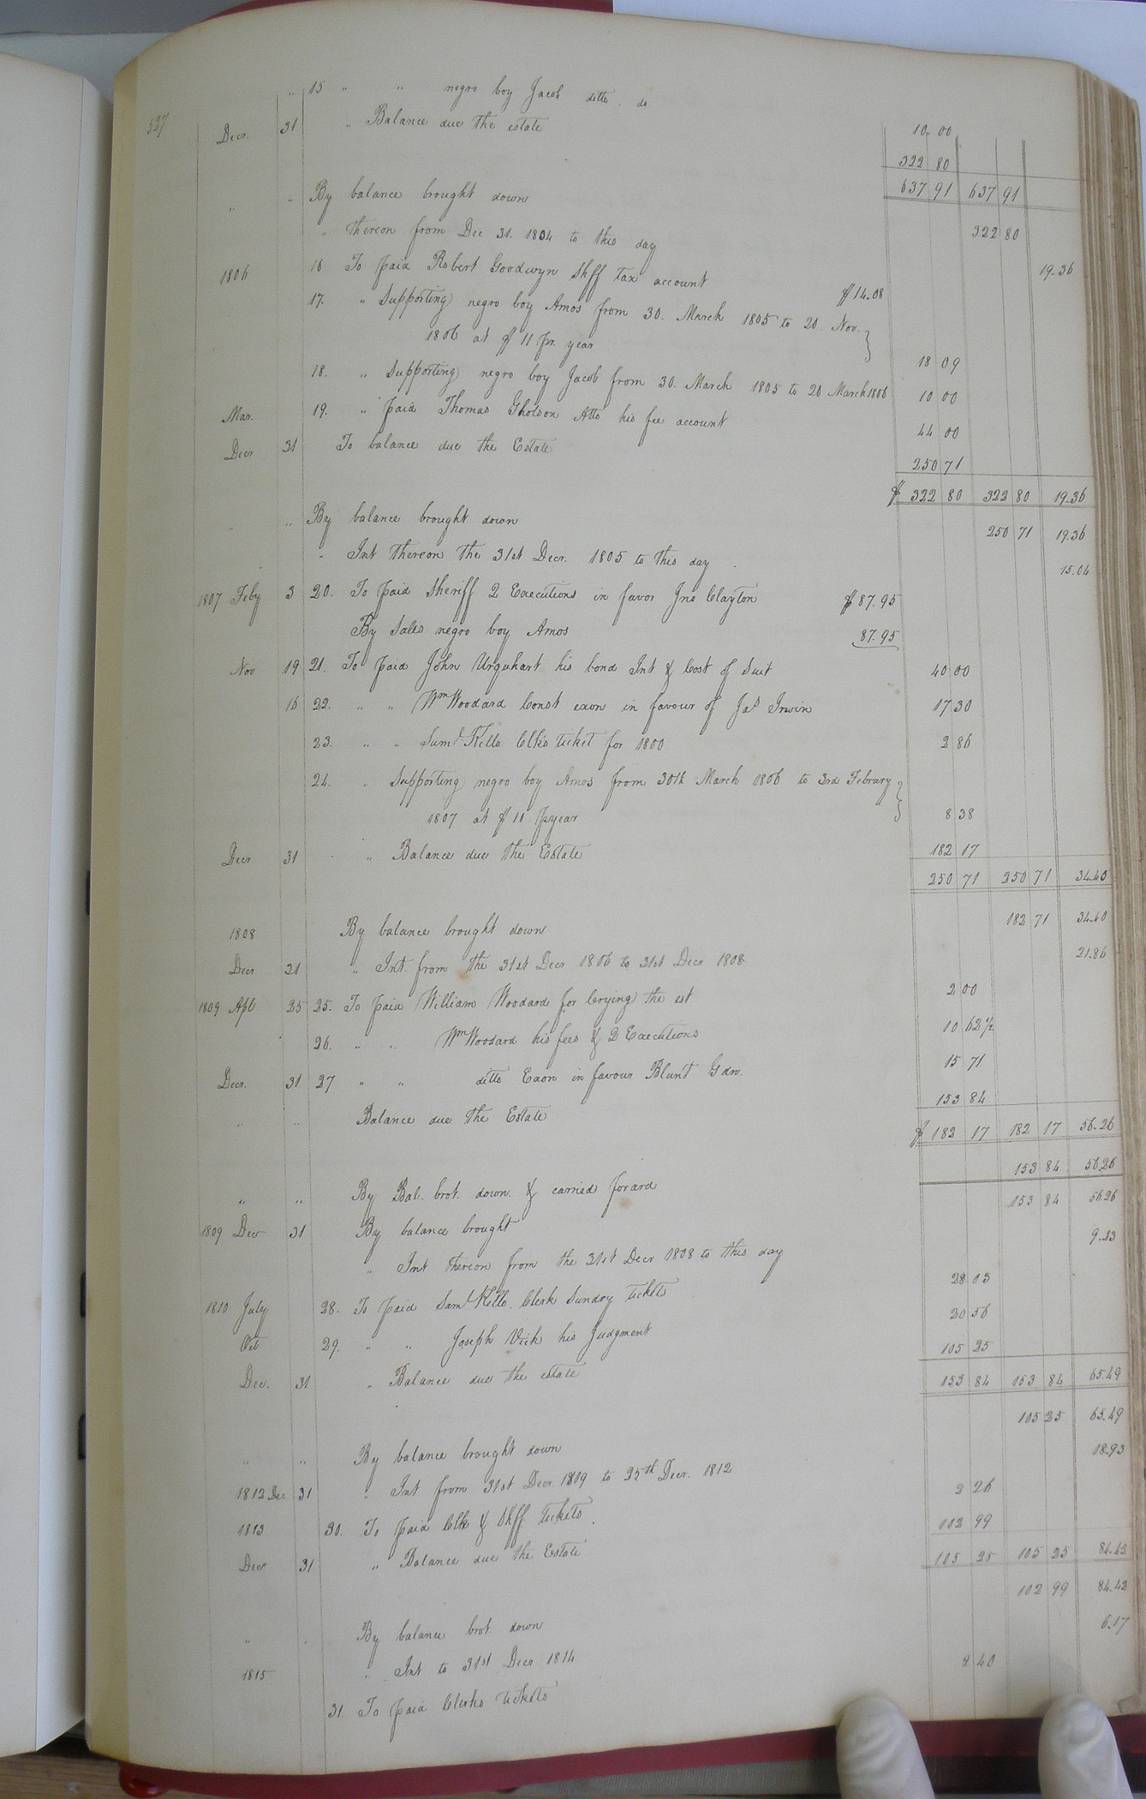 " 15 " " negro boy Jacob ditto do 10 00
537 Decr. 31 " Balance due the estate 322 80
637 91 637 91
" " By balance brought down 322 80
" thereon from Dec 31. 1804 to this day 19.36
1806 16. To paid Robert Goodwyn Shff tax account $14.08
17. " Supporting negro boy Amos from 30. March 1805 to 20 Nov.
1806 at $11 pr. year 18 09
18. " Supporting negro boy Jacob from 30. March 1805 to 20 March 1806 10 00
Mar. 19. " paid Thomas Gholson Atto his fee account 44 00
Decr 31 To balance due the Estate 250 71
$ 322 80 322 80 19.36
" By balance brought down 250 71 19.36
" Int thereon the 31st Decr. 1805 to this day 15.04
1807 Feby 3 20. To paid Sheriff 2 Executions in favor Jno Clayton $87.95
By Sales negro boy Amos 87.95
Nov 19 21. To paid John Urquhart his bond Int & Cost of Suit 40 00
16 22. " " Wm Woodard Const exon in favour of Jas Irwin 17 30
23. " " Saml Kello Clks ticket for 1800 2 86
24. " Supporting negro boy Amos from 30th March 1806 to 3rd Febrary
1807 at $10 pr year 8 38
Decr 31 " Balance due the Estate 182 17
250 71 250 71 34.40
1808 By balance brought down 182 71 34.40
Decr 31 " Int from the 31st Decr 1806 to 31st Decr 1808 21.86
1809 Apl 25 25. To paid William Woodard for Crying the est 2 00
26. " " Wm Woodard his fees & 2 Executions 10 62½
Decr. 31 27 " " ditto Exon in favour Blunt Gdn. 15 71
" " Balance due the Estate 153 84
$ 182 17 182 17 56.26
" " By Bal. brot. down & carried forard 153 84 56.26
1809 Decr 31 By balance brought 153 84 56.26
" Int thereon from the 31st Decr 1808 to this day 9.23
1810 July 28. To paid Saml Kello Clerk Sundry tickets 28 03
Oct 29. " " Joseph Vick his Judgment 20 56
Dec. 31 " Balance due the estate 105 25
153 84 153 84 65.49
" " By balance brought down 105 25 65.49
1812 Dec 31 " Int from 31st Decr 1809 to 25th Decr. 1812 18.93
1813 30. To paid Clk & Shff tickets 2 26
Decr 31 " Balance due the Estate 102 99
105 25 105 25 84.42
" By balance brot. down 102 99 84.42
1815 " Int to 31st Decr 1814 6.17
31. To paid Clerks tickets 2 40